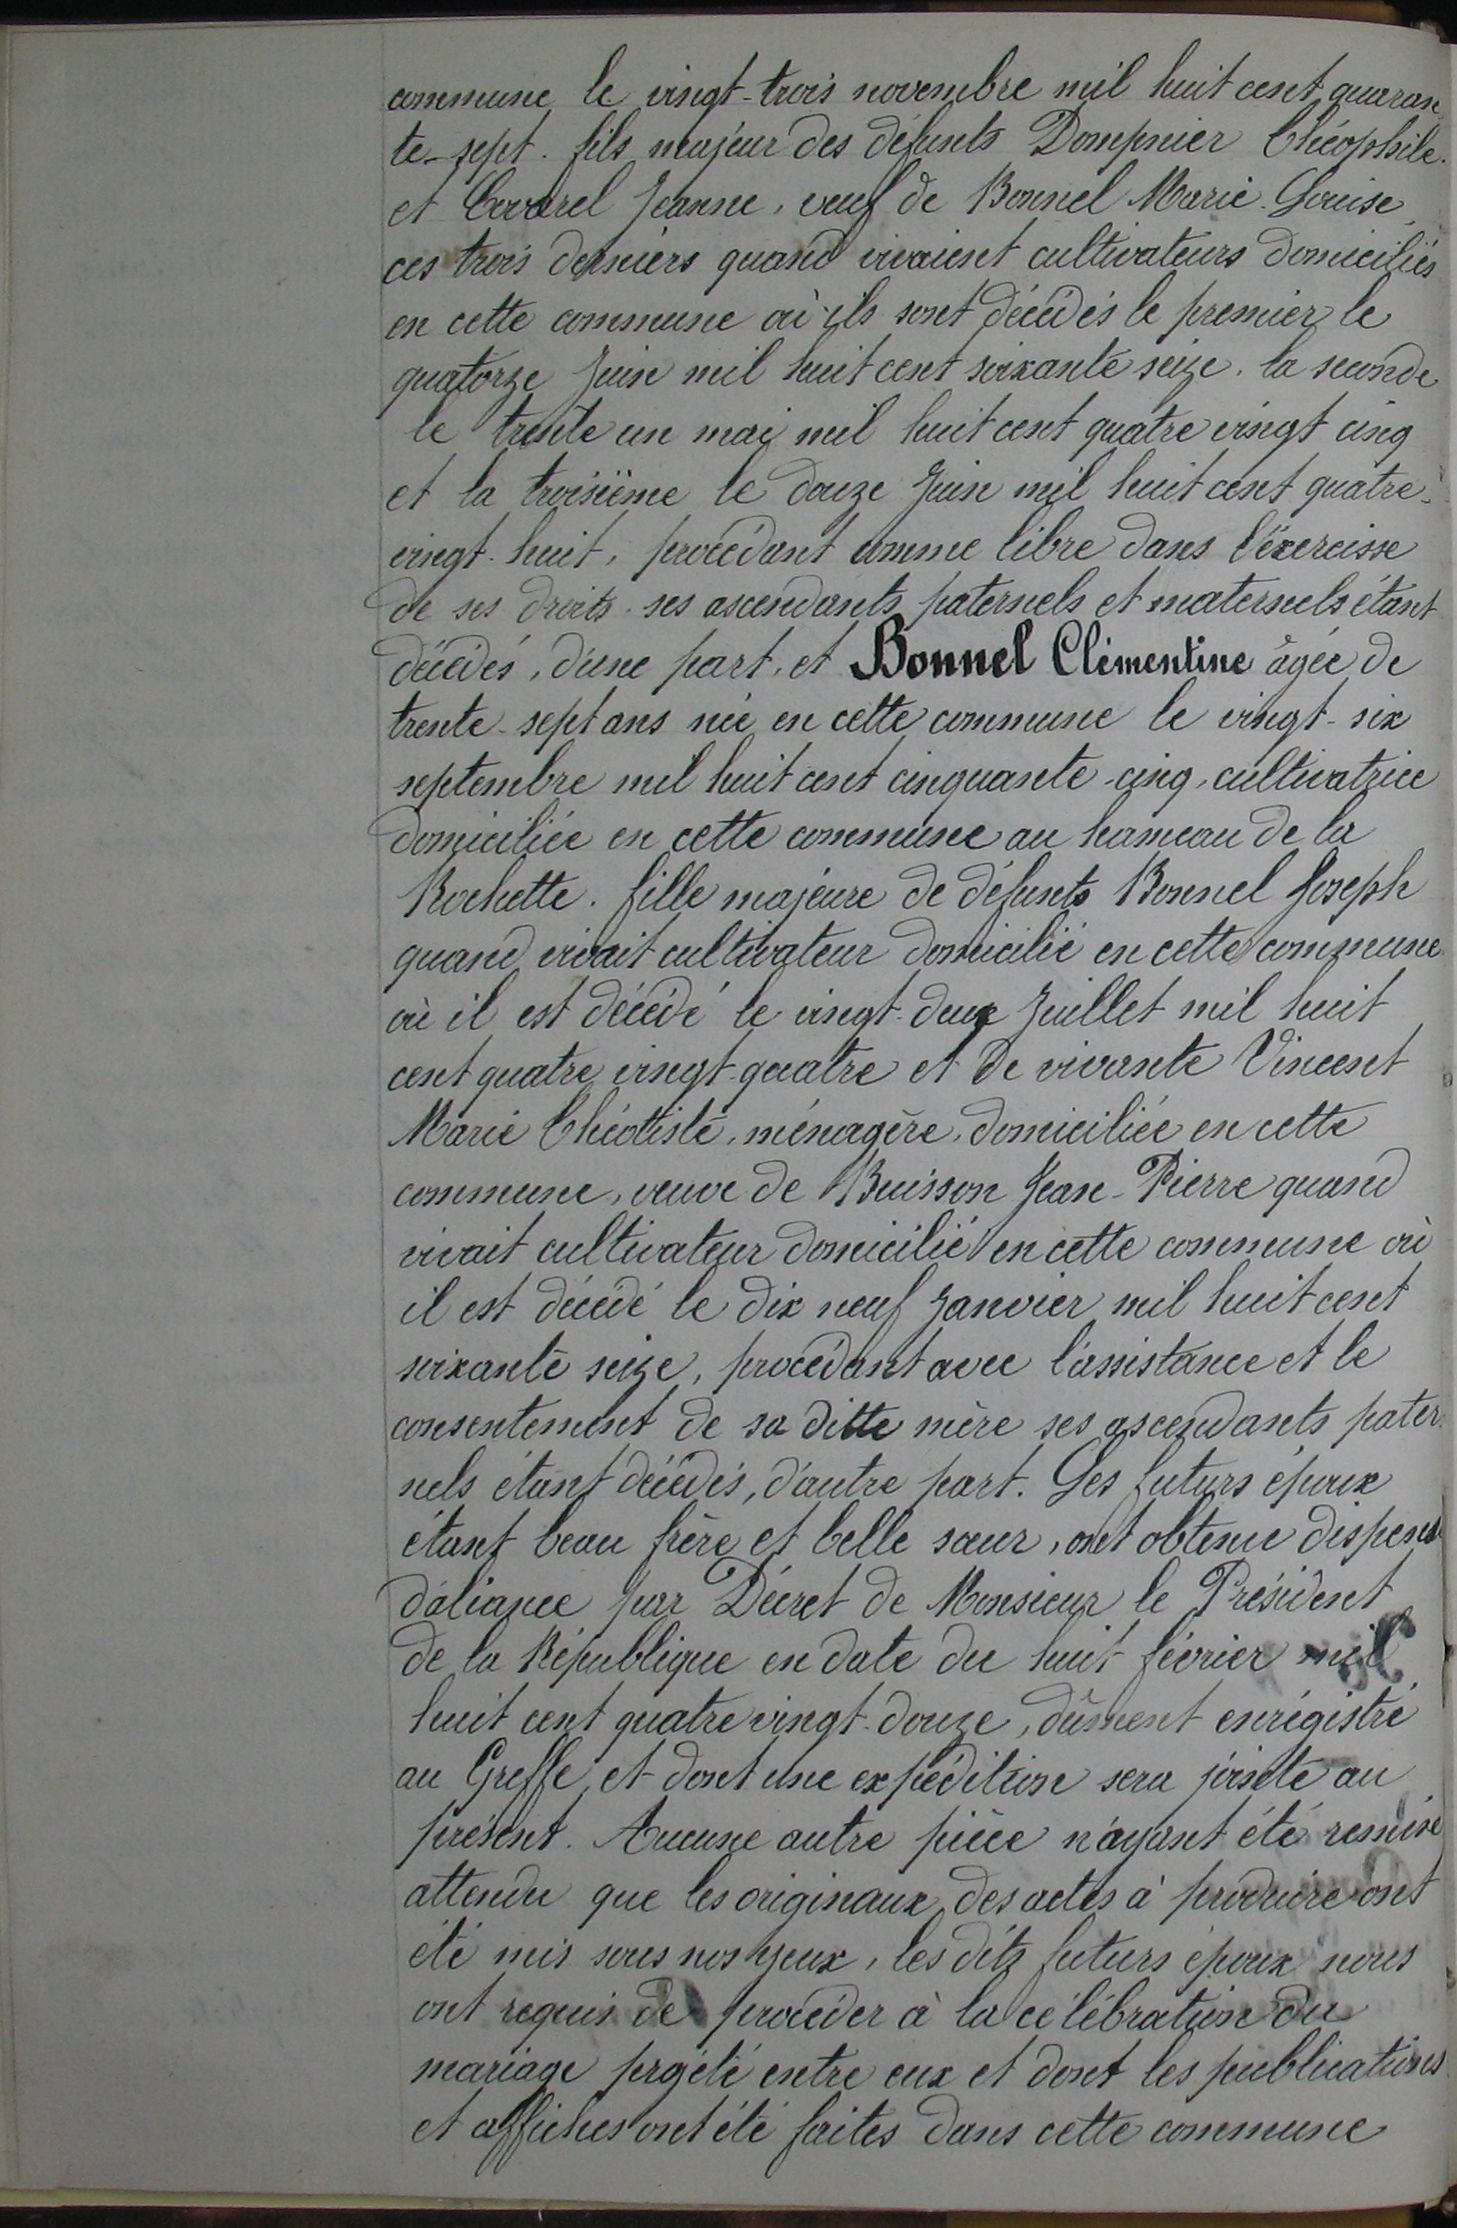 commune le vingt-trois novembre mil huit cent quaran
te-sept. fils majeur des défunts Dompnier Théophile.
et Covarel Jeanne, veuf de Bonnel Marie-Louise,
ces trois derniers quand vivaient cultivateurs domiciliés
en cette commune où ils sont décédés le premier le
quatorze Juin mil huit cent soixante seize, la seconde
le trente un mai mil huit cent quatre vingt cinq
et la troisième le douze Juin mil huit cent quatre-
vingt-huit, procédant comme libre dans l'éxercisse
de ses droits. ses ascendants paternels et maternels étant
décédés, d'une part, et Bonnel Clémentine âgée de
trente-sept ans née en cette commune le vingt-six
septembre mil huit cent cinquante-cinq, cultivatrice
domiciliée en cette commune au hameau de la
Rochette. fille majeure de défunts Bonnel Joseph
quand vivait cultivateur domicilié en cette commune
où il est décédé le vingt-deux Juillet mil huit
cent quatre vingt-quatre et de vivante Vincent
Marie Théotiste, ménagère, domiciliée en cette
commune, veuve de Buisson Jean-Pierre quand
vivait cultivateur domicilié en cette commune où
il est décédé le dix neuf Janvier mil huit cent
soixante seize, procédant avec l'assistance et le
consentement de sa ditte mère ses ascendants pater
nels étant décédés, d'autre part. Les futurs époux
étant beau frère et belle sœur, ont obtenu dispense
d'aliance par Décret de Monsieur le Président
de la République en date du huit février mil
huit cent quatre vingt-douze, dûment enrégistré
au Greffe et dont une expédition sera jointe au
présent. Aucune autre pièce n'ayant été remise
attendu que les originaux des actes à produire ont
été mis sous nos yeux, les dits futurs époux nous
ont requis de procéder à la célébration du
mariage projété entre eux et dont les publications
et affiches ont été faites dans cette commune